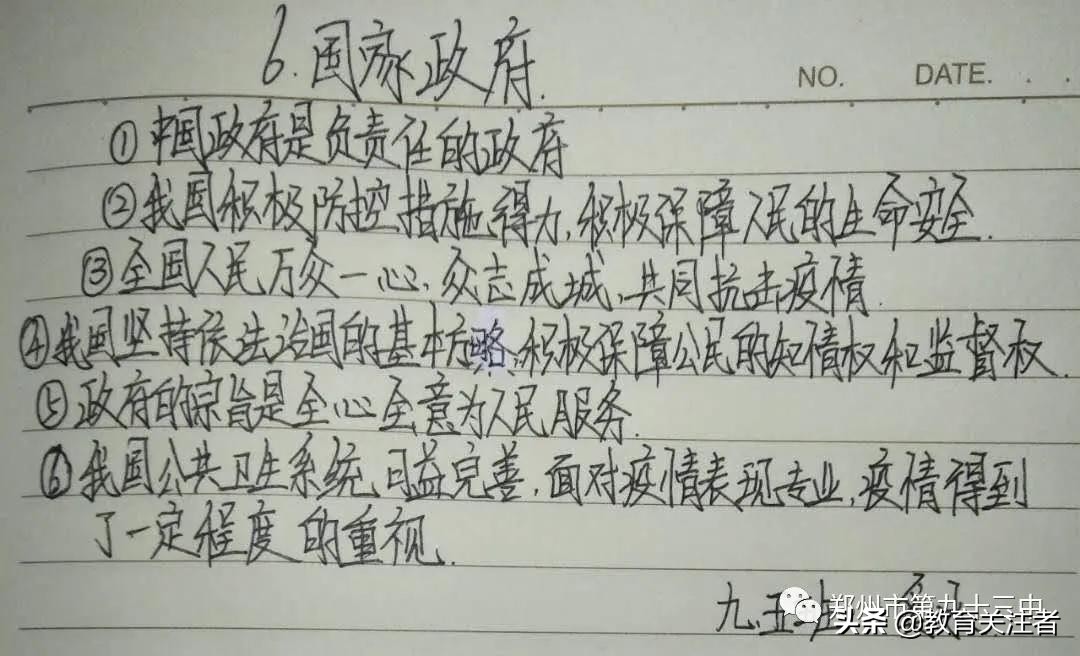 6.国家政府.
NO. DATE.
①中国政府是负责任的政府
②我国积极防控措施得力,积极保障人民的生命安全.
③全国人民万众一心,众志成城,共同抗击疫情.
④我国坚持依法治国的基本方略,积极保障公民的知情权和监督权.
⑤政府的宗旨是全心全意为人民服务.
⑥我国公共卫生系统日益完善,面对疫情表现专业,疫情得到
了一定程度的重视.
九.五班
郑州市第九十三中
头条 @教育关注者